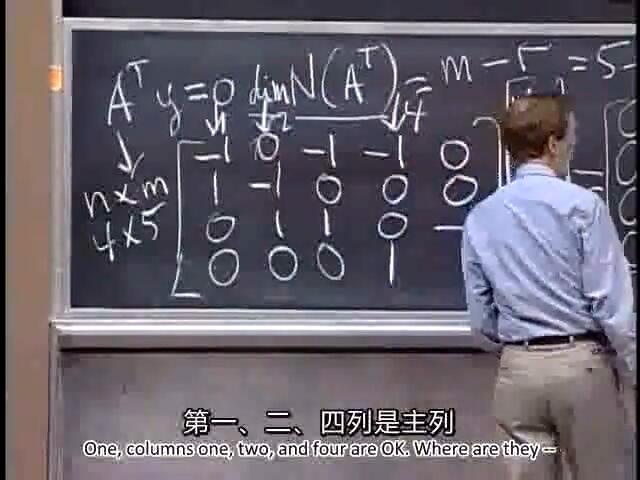 Aᵀy = 0 dim N(Aᵀ) = m − r = 5 −
↓ 1 ↓ 2 ↓ 4
n × m
4 × 5
−1 0 −1 −1 0
1 −1 0 0 0
0 1 1 0 −
0 0 0 1
第一、二、四列是主列
One, columns one, two, and four are OK. Where are they --